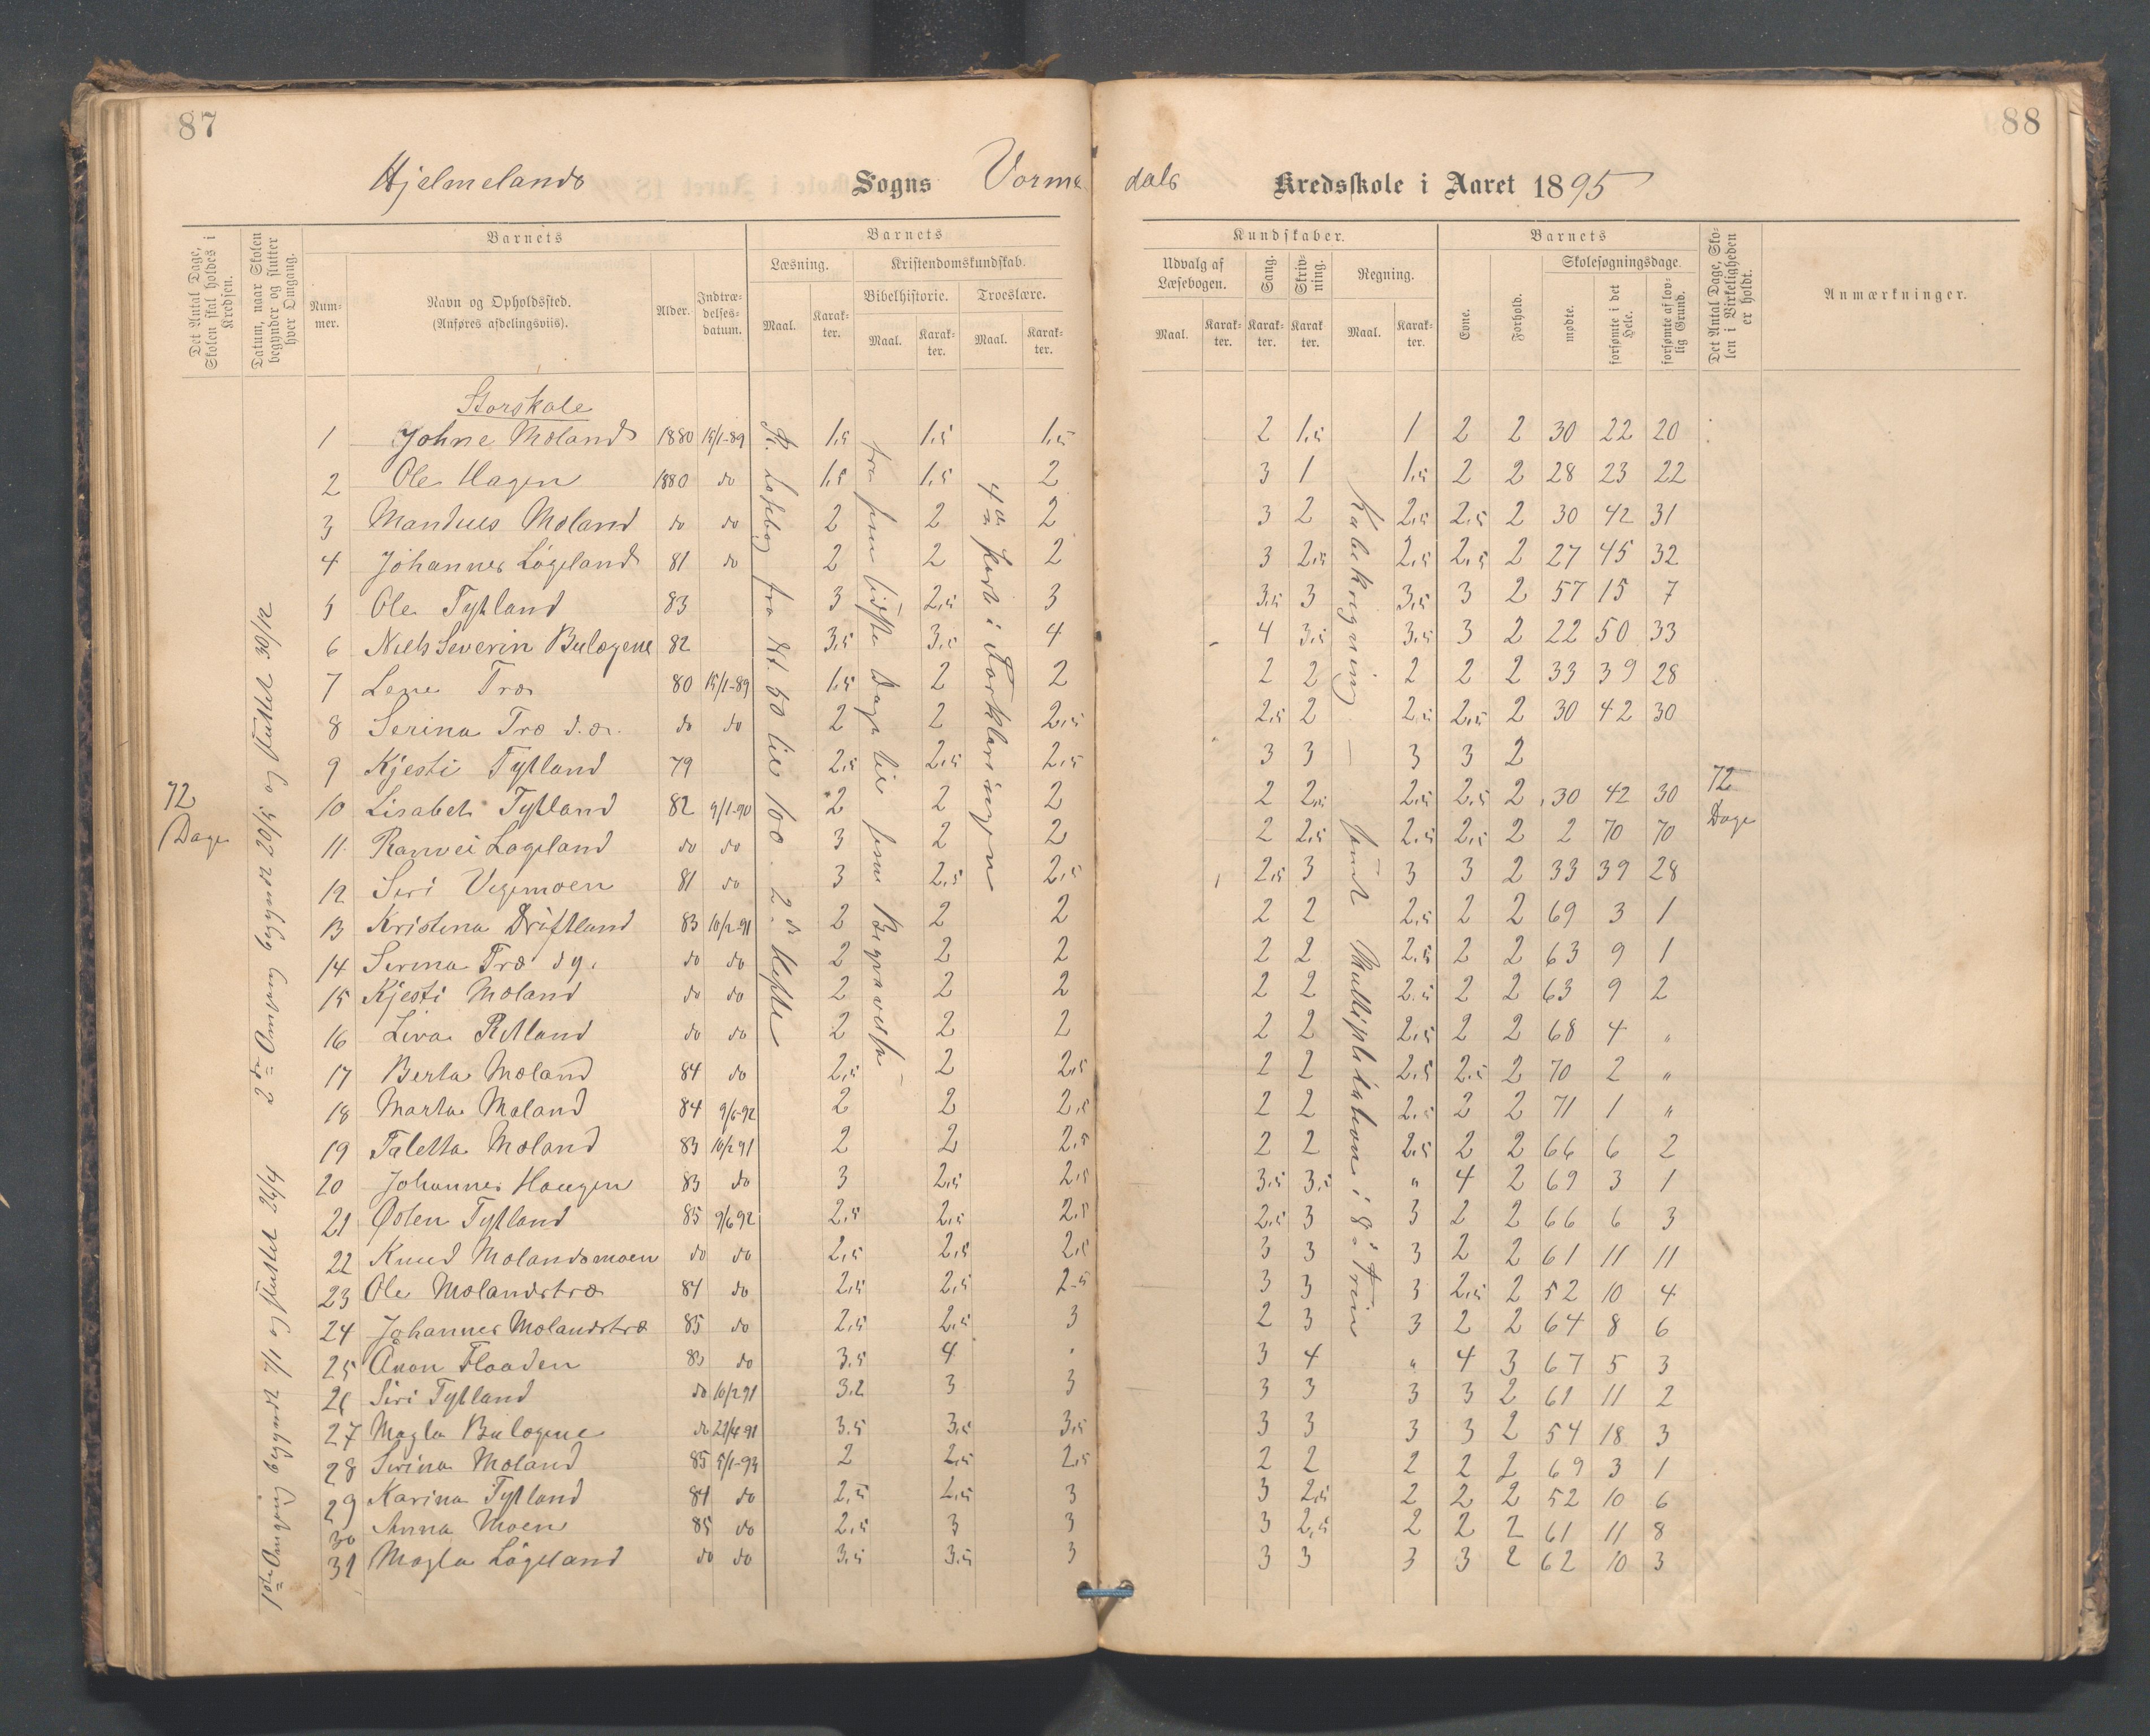 87
88
Hjelmelands Sogns Vorme dals Kredsskole i Aaret 1895
Det Antal Dage, Skolen skal holdes i Kredsen.
Datum, naar Skolen begynder og slutter hver Omgang.
Barnets
Nummer.
Navn og Opholdssted.
(Anføres afdelingsviis).
Alder.
Indtrædelsesdatum.
Barnets
Læsning.
Maal.
Karakter.
Kristendomskundskab.
Bibelhistorie.
Maal.
Karakter.
Troeslære.
Maal.
Karakter.
Kundskaber.
Udvalg af Læsebogen.
Maal.
Karakter.
Sang.
Karakter.
Skrivning.
Karakter
Regning.
Maal.
Karakter.
Barnets
Evne.
Forhold.
Skolesøgningsdage.
mødte.
forsømte i det Hele.
forsømte af lovlig Grund.
Det Antal Dage, Skolen i Virkeligheden er holdt.
Anmærkninger.
Storskole
1 Johne Moland 1880 15/1-89 1,5 1,5 1,5 2 1,5 1 2 2 30 22 20
2 Ole Hagen 1880 do 1,5 1,5 2 3 1 1,5 2 2 28 23 22
3 Mandius Moland do do 2 2 2 3 2 2,5 2,5 2 30 42 31
4 Johannes Løgeland 81 do 2 2 2 3 2,5 2,5 2,5 2 27 45 32
5 Ole Tytland 83 3 2,5 3 3,5 3 3,5 3 2 57 15 7
6 Niels Severin Bulegene 82 3,5 3,5 4 4 3,5 3,5 3 2 22 50 33
7 Lene Træ 80 15/1-89 1,5 2 2 2 2 2 2 2 33 39 28
8 Serina Træ d.æ. do do 2 2 2,5 2,5 2 2,5 2,5 2 30 42 30
9 Kjesti Tytland 79 2,5 2,5 2,5 3 3 3 3 2
10 Lisabet Tytland 82 9/1-90 2 2 2 2 2,5 2,5 2,5 2 30 42 30
11 Ranvei Løgeland do do 3 2 2 2 2,5 2,5 2,5 2 2 70 70
12 Siri Vegemoen 81 do 3 2,5 2,5 2,5 3 3 3 2 33 39 28
13 Kristina Driftland 83 10/2-91 2 2 2 2 2 2,5 2 2 69 3 1
14 Serina Træ d.y. do do 2 2 2 2 2 2,5 2 2 63 9 1
15 Kjesti Moland do do 2 2 2 2 2 2,5 2 2 63 9 2
16 Liva Retland do do 2 2 2 2 2 2,5 2 2 68 4 "
17 Berta Moland 84 do 2,5 2 2,5 2 2 2,5 2,5 2 70 2 "
18 Marta Moland 84 9/6-92 2 2 2,5 2 2 2,5 2 2 71 1 "
19 Taletta Moland 83 10/2 91 2 2 2,5 2 2 2,5 2 2 66 6 2
20 Johannes Haugen 83 do 3 2,5 2,5 3,5 3,5 " 4 2 69 3 1
21 Østen Tytland 85 9/6 92 2,5 2,5 2,5 2,5 3 3 2 2 66 6 3
22 Knud Molandsmoen do do 2,5 2,5 2,5 3 3 3 2 2 61 11 11
23 Ole Molandstræ 84 do 2,5 2,5 2,5 3 3 3 2,5 2 52 10 4
24 Johannes Molandstræ 85 do 2,5 2,5 3 2 3 3 2 2 64 8 6
25 Anon Flaaden 83 do 3,5 4 3 4 " 4 3 67 5 3
26 Siri Tytland do 10/2 91 3.2 3 3 3 3 3 3 2 61 11 2
27 Magla Bulegene do 21/4 91 3.5 3,5 3,5 3 3 3 3 2 54 18 3
28 Serina Moland 85 5/1-93 2 2,5 2,5 2 2 2 2 2 69 3 1
29 Karina Tytland 84 do 2,5 2,5 3 3 2,5 2 2 2 52 10 6
30 Anna Moen 85 do 2,5 3 3 3 2,5 2 2 2 61 11 8
31 Magla Løgeland do do 3,5 3.5 3 3 3 3 3 2 62 10 3
72
Dage
1ste Omgang begyndt 7/1 og sluttet 26/4 2den Omgang begyndt 20/5 og sluttet 30/12
Læsebog fra St. 50 till 100. 2det Hefte
fra sin sidste Dage till Begravelse
4de Part i Forklaringen
Multiplikation i 8de Trin
72
Dage